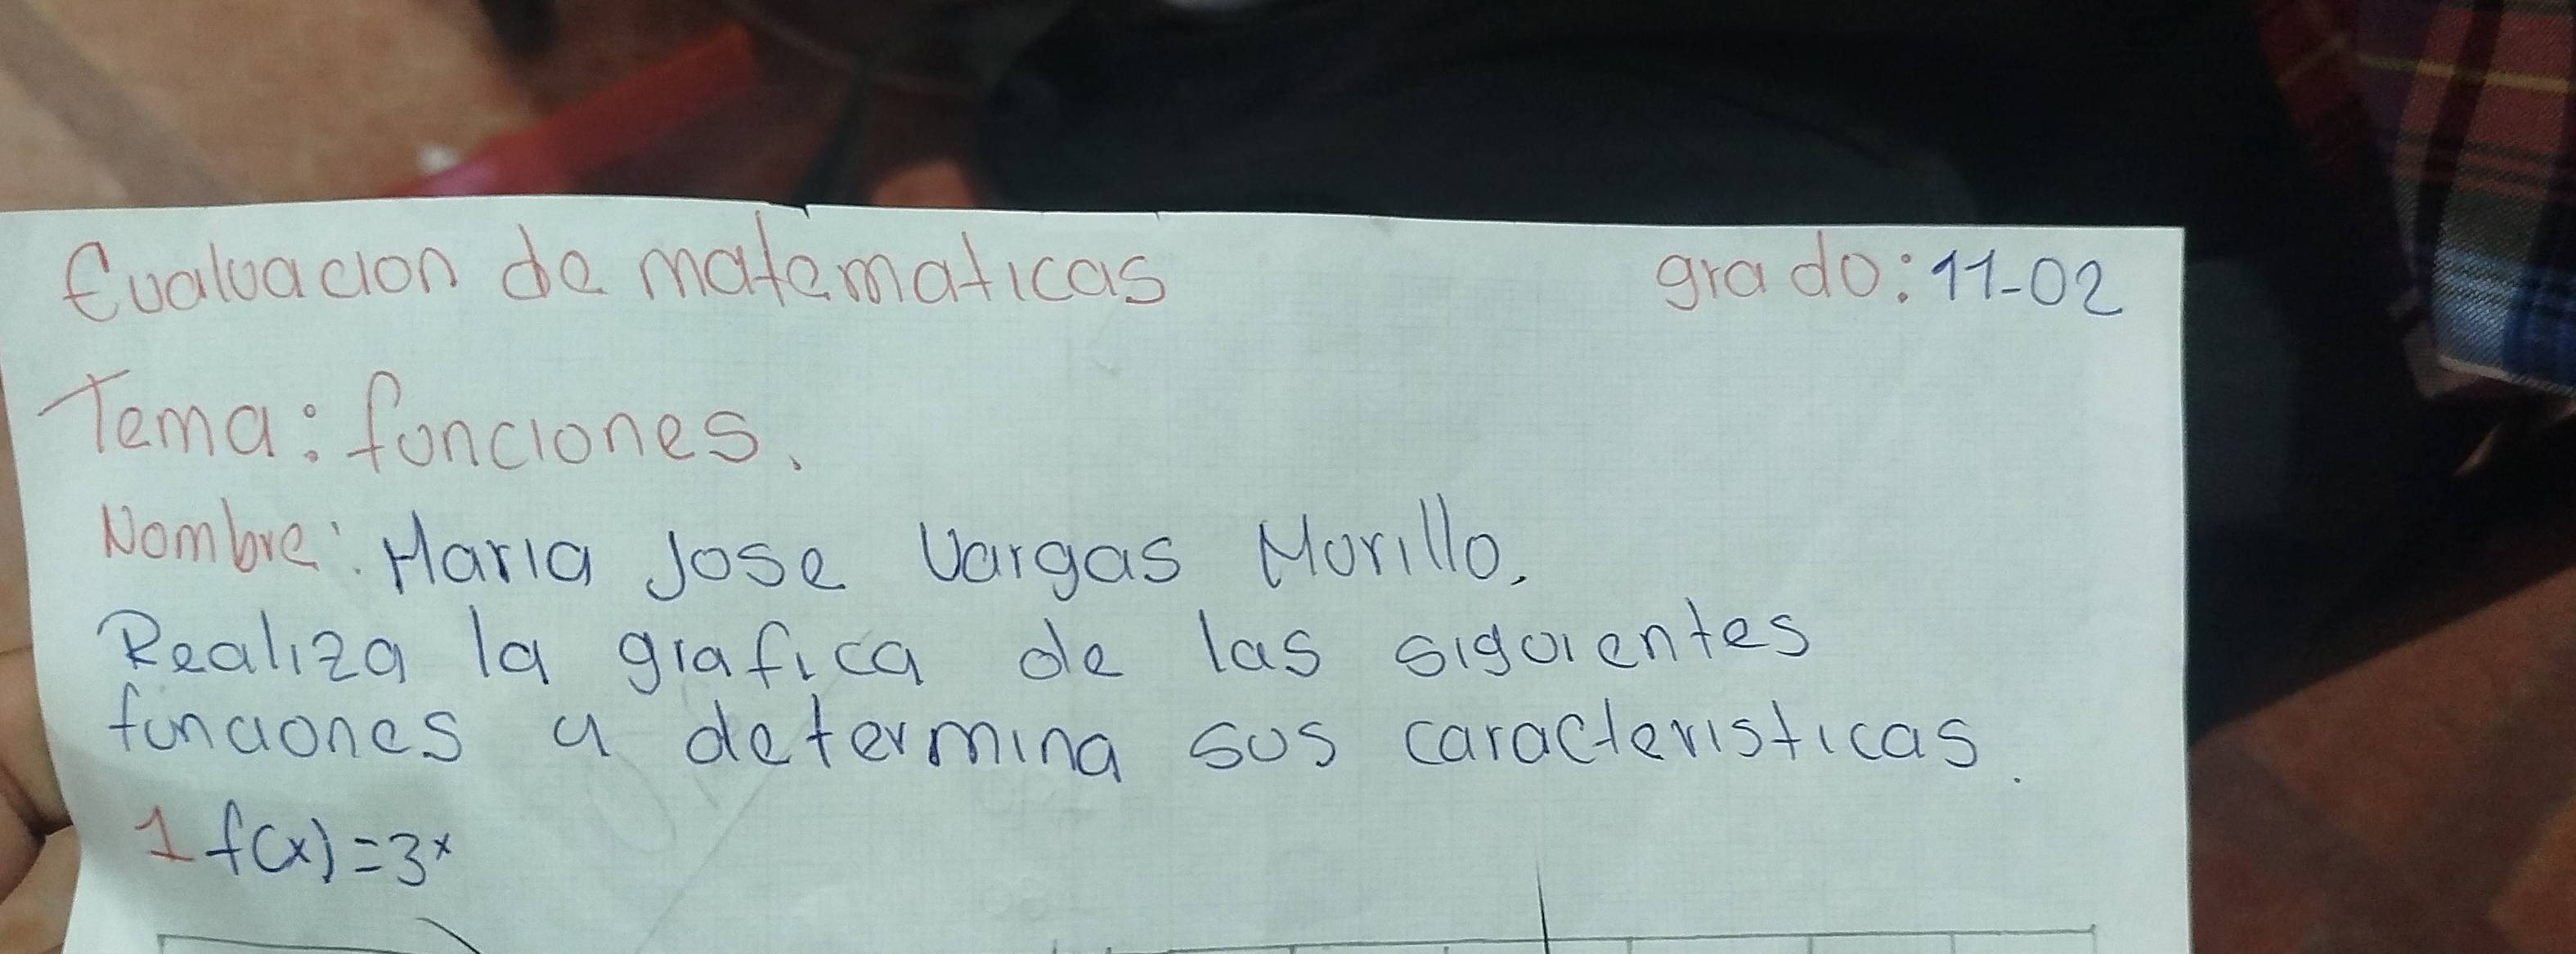 Evaluacion de matematicas grado: 11-02
Tema: funciones.
Nombre: Maria Jose Vargas Murillo.
Realiza la grafica de las siguientes
funciones y determina sus caracteristicas.
1 f(x)=3ˣ